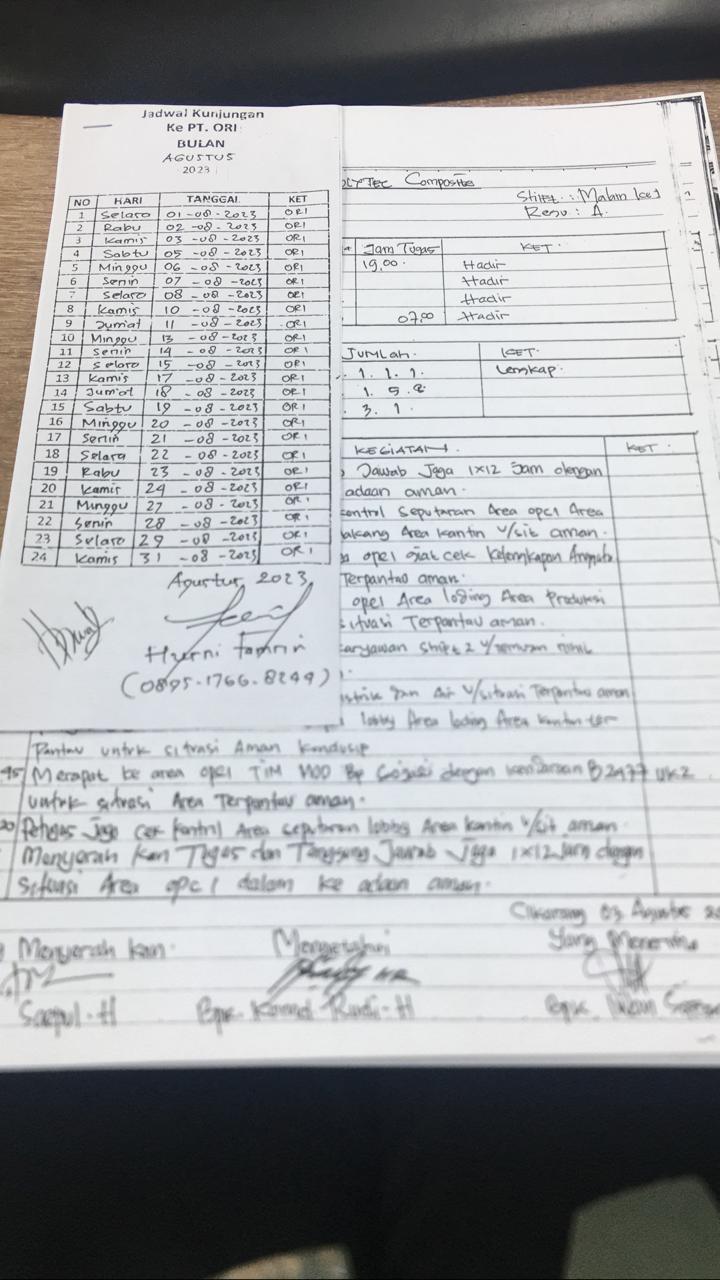 Jadwal Kunjungan
Ke PT. ORI
BULAN
AGUSTUS
2023
NO HARI TANGGAL KET
1 Selasa 01-08-2023 ORI
2 Rabu 02-08-2023 ORI
3 Kamis 03-08-2023 ORI
4 Sabtu 05-08-2023 ORI
5 Minggu 06-08-2023 ORI
6 Senin 07-08-2023 ORI
7 Selasa 08-08-2023 ORI
8 Kamis 10-08-2023 ORI
9 Jum'at 11-08-2023 ORI
10 Minggu 13-08-2023 ORI
11 Senin 14-08-2023 ORI
12 Selasa 15-08-2023 ORI
13 Kamis 17-08-2023 ORI
14 Jum'at 18-08-2023 ORI
15 Sabtu 19-08-2023 ORI
16 Minggu 20-08-2023 ORI
17 Senin 21-08-2023 ORI
18 Selasa 22-08-2023 ORI
19 Rabu 23-08-2023 ORI
20 Kamis 24-08-2023 ORI
21 Minggu 27-08-2023 ORI
22 Senin 28-08-2023 ORI
23 Selasa 29-08-2023 ORI
24 Kamis 31-08-2023 ORI
Agustus, 2023
Husni Tamrin
(0895-1766-8244)
Composites
Shift : Malam
Regu : A.
Jam Tugas KET.
19.00. Hadir
Hadir
Hadir
07.00 Hadir
JUMLAH. KET.
1. 1. 1. Lengkap.
1. 5. 2
3. 1.
KEGIATAN. KET.
Jawab Jaga 1x12 Jam dengan
adaan aman.
Seputaran Area opc1 Area
Area kantin u/sit aman.
opc1 giat cek Kelengkapan Anggota
Terpantau aman.
opc1 Area loding Area Produksi
situasi Terpantau aman.
karyawan Shift 2 u/temuan nihil
dan Air u/situasi Terpantau aman
lobby Area loding Area kantin ter
Pantau untuk situasi Aman Kondusip
Merapat ke area opc1 TIM MOD Bp dengan kendaraan B 2477 UKZ
untuk situasi Area Terpantau aman.
Petugas Jaga cek kontrol Area seputaran lobby Area kantin u/sit aman.
Menyerah kan Tugas dan Tanggung Jawab Jaga 1x12 Jam dengan
Situasi Area opc1 dalam ke adaan aman.
Cikarang 03 Agustus
Menyerah kan. Mengetahui Yang Menerima
Saepul-H Bpk. Rudi-H Bpk. Iwan